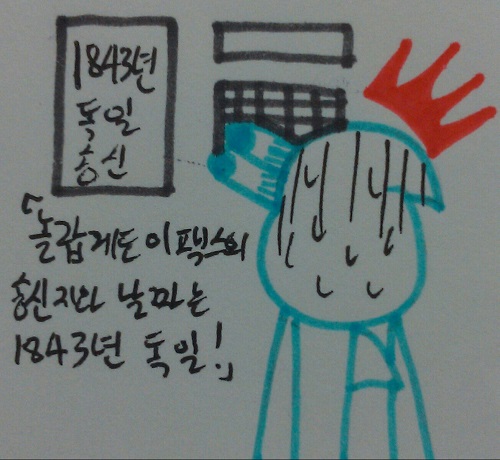 1843년
독일
송신
「놀랍게도 이 팩스의
송신지와 날짜는
1843년 독일!」